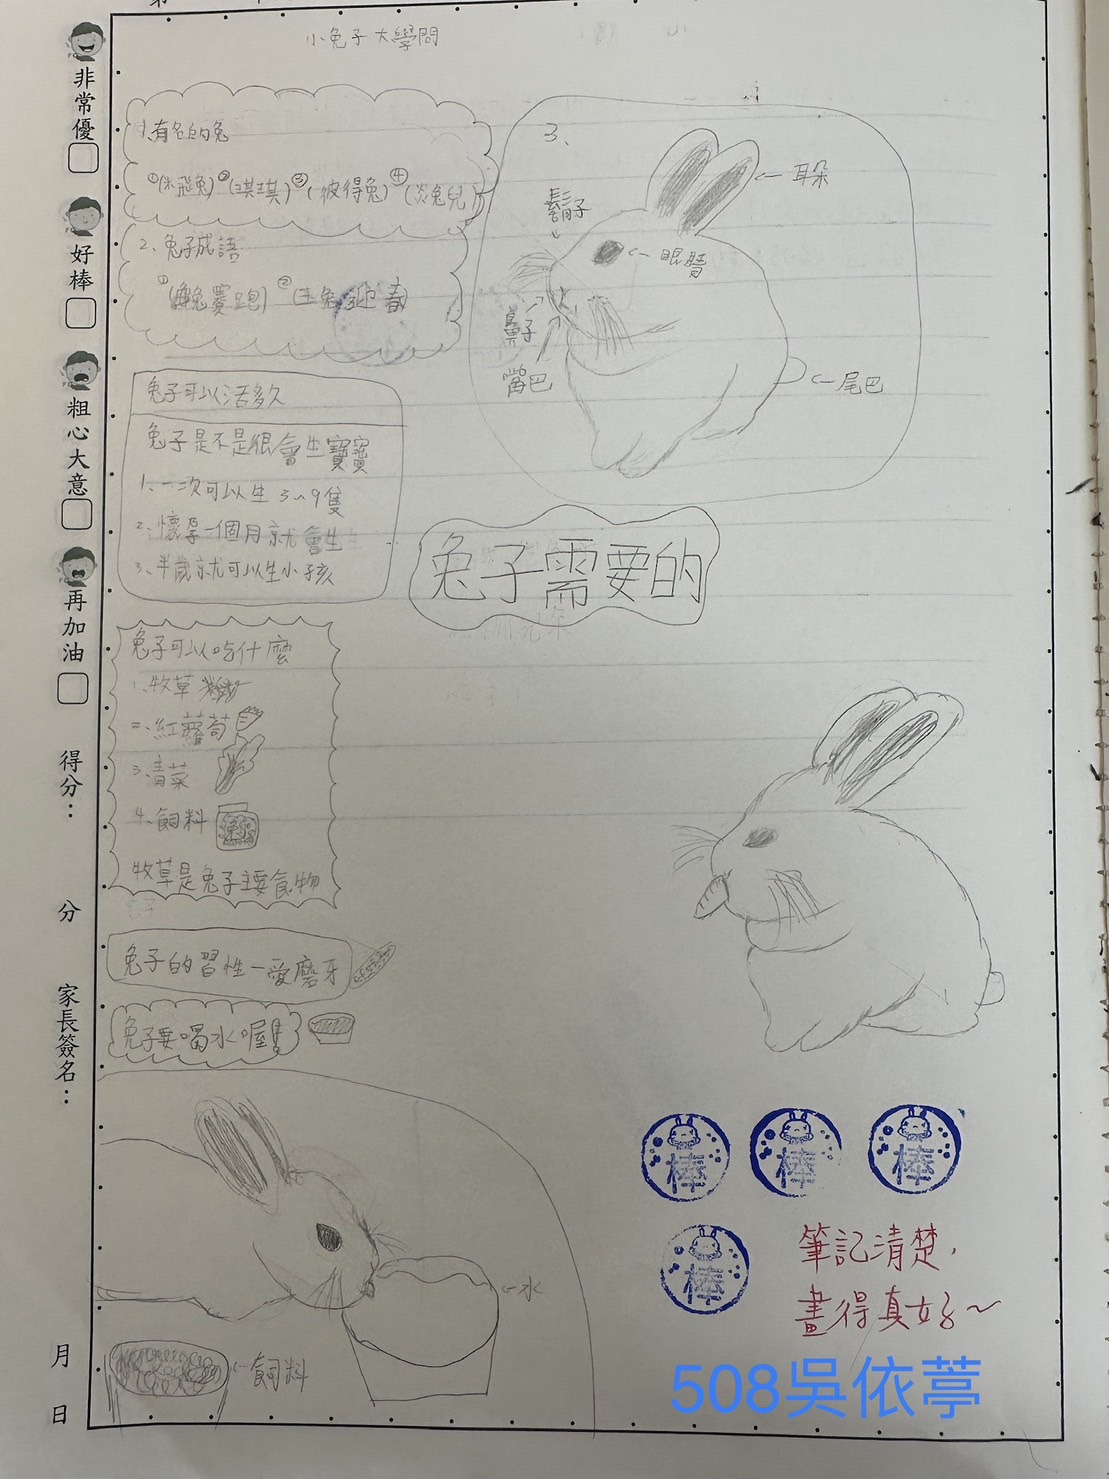 小兔子大學問
1.有名的兔
①(米飛兔)②(琪琪)③(彼得兔)④(炎兔兒)
2、兔子成語
①(龜兔賽跑)②(玉兔迎春)
3、
耳朵
鬍子
眼睛
鼻子
嘴巴
尾巴
兔子可以活多久
兔子是不是很會生寶寶
1、一次可以生 3~9隻
2、懷孕一個月就會生
3、半歲就可以生小孩
兔子需要的
兔子可以吃什麼
1、牧草
2、紅蘿蔔
3、青菜
4、飼料
牧草是兔子主要食物
兔子的習性一愛磨牙
兔子要喝水喔!
水
飼料
棒
棒
棒
棒
筆記清楚,
畫得真好~
508吳依葶
非常優
好棒
粗心大意
再加油
得分：
分
家長簽名：
月
日